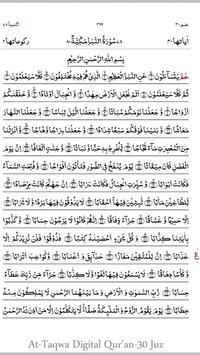 عم ٣٠
النبا ٧٨
اياتها ٤٠ سُوْرَةُ النَّبَاِ مَكِّيَّةٌ ركوعاتها ٢
بِسْمِ اللهِ الرَّحْمٰنِ الرَّحِيْمِ
عَمَّ يَتَسَآءَلُوْنَ عَنِ النَّبَاِ الْعَظِيْمِ الَّذِيْ هُمْ فِيْهِ مُخْتَلِفُوْنَ كَلَّا سَيَعْلَمُوْنَ
ثُمَّ كَلَّا سَيَعْلَمُوْنَ اَلَمْ نَجْعَلِ الْاَرْضَ مِهٰدًا وَّالْجِبَالَ اَوْتَادًا وَّخَلَقْنٰكُمْ
اَزْوَاجًا وَّجَعَلْنَا نَوْمَكُمْ سُبَاتًا وَّجَعَلْنَا الَّيْلَ لِبَاسًا وَّجَعَلْنَا النَّهَارَ
مَعَاشًا وَّبَنَيْنَا فَوْقَكُمْ سَبْعًا شِدَادًا وَّجَعَلْنَا سِرَاجًا وَّهَّاجًا وَّاَنْزَلْنَا مِنَ
الْمُعْصِرٰتِ مَآءً ثَجَّاجًا لِّنُخْرِجَ بِهٖ حَبًّا وَّنَبَاتًا وَّجَنّٰتٍ اَلْفَافًا اِنَّ يَوْمَ
الْفَصْلِ كَانَ مِيْقَاتًا يَّوْمَ يُنْفَخُ فِي الصُّوْرِ فَتَاْتُوْنَ اَفْوَاجًا وَّفُتِحَتِ السَّمَآءُ
فَكَانَتْ اَبْوَابًا وَّسُيِّرَتِ الْجِبَالُ فَكَانَتْ سَرَابًا اِنَّ جَهَنَّمَ كَانَتْ مِرْصَادًا
لِّلطَّاغِيْنَ مَاٰبًا لّٰبِثِيْنَ فِيْهَآ اَحْقَابًا لَا يَذُوْقُوْنَ فِيْهَا بَرْدًا وَّلَا شَرَابًا
اِلَّا حَمِيْمًا وَّغَسَّاقًا جَزَآءً وِّفَاقًا اِنَّهُمْ كَانُوْا لَا يَرْجُوْنَ حِسَابًا وَّكَذَّبُوْا
بِاٰيٰتِنَا كِذَّابًا وَكُلَّ شَيْءٍ اَحْصَيْنٰهُ كِتٰبًا فَذُوْقُوْا فَلَنْ نَّزِيْدَكُمْ اِلَّا عَذَابًا
اِنَّ لِلْمُتَّقِيْنَ مَفَازًا حَدَآئِقَ وَاَعْنَابًا وَّكَوَاعِبَ اَتْرَابًا وَّكَاْسًا دِهَاقًا لَا
يَسْمَعُوْنَ فِيْهَا لَغْوًا وَّلَا كِذّٰبًا جَزَآءً مِّنْ رَّبِّكَ عَطَآءً حِسَابًا
رَّبِّ السَّمٰوٰتِ وَالْاَرْضِ وَمَا بَيْنَهُمَا الرَّحْمٰنِ لَا يَمْلِكُوْنَ مِنْهُ خِطَابًا
يَوْمَ يَقُوْمُ الرُّوْحُ وَالْمَلٰٓئِكَةُ صَفًّا لَا يَتَكَلَّمُوْنَ اِلَّا مَنْ اَذِنَ لَهُ الرَّحْمٰنُ
At-Taqwa Digital Qur'an-30 Juz